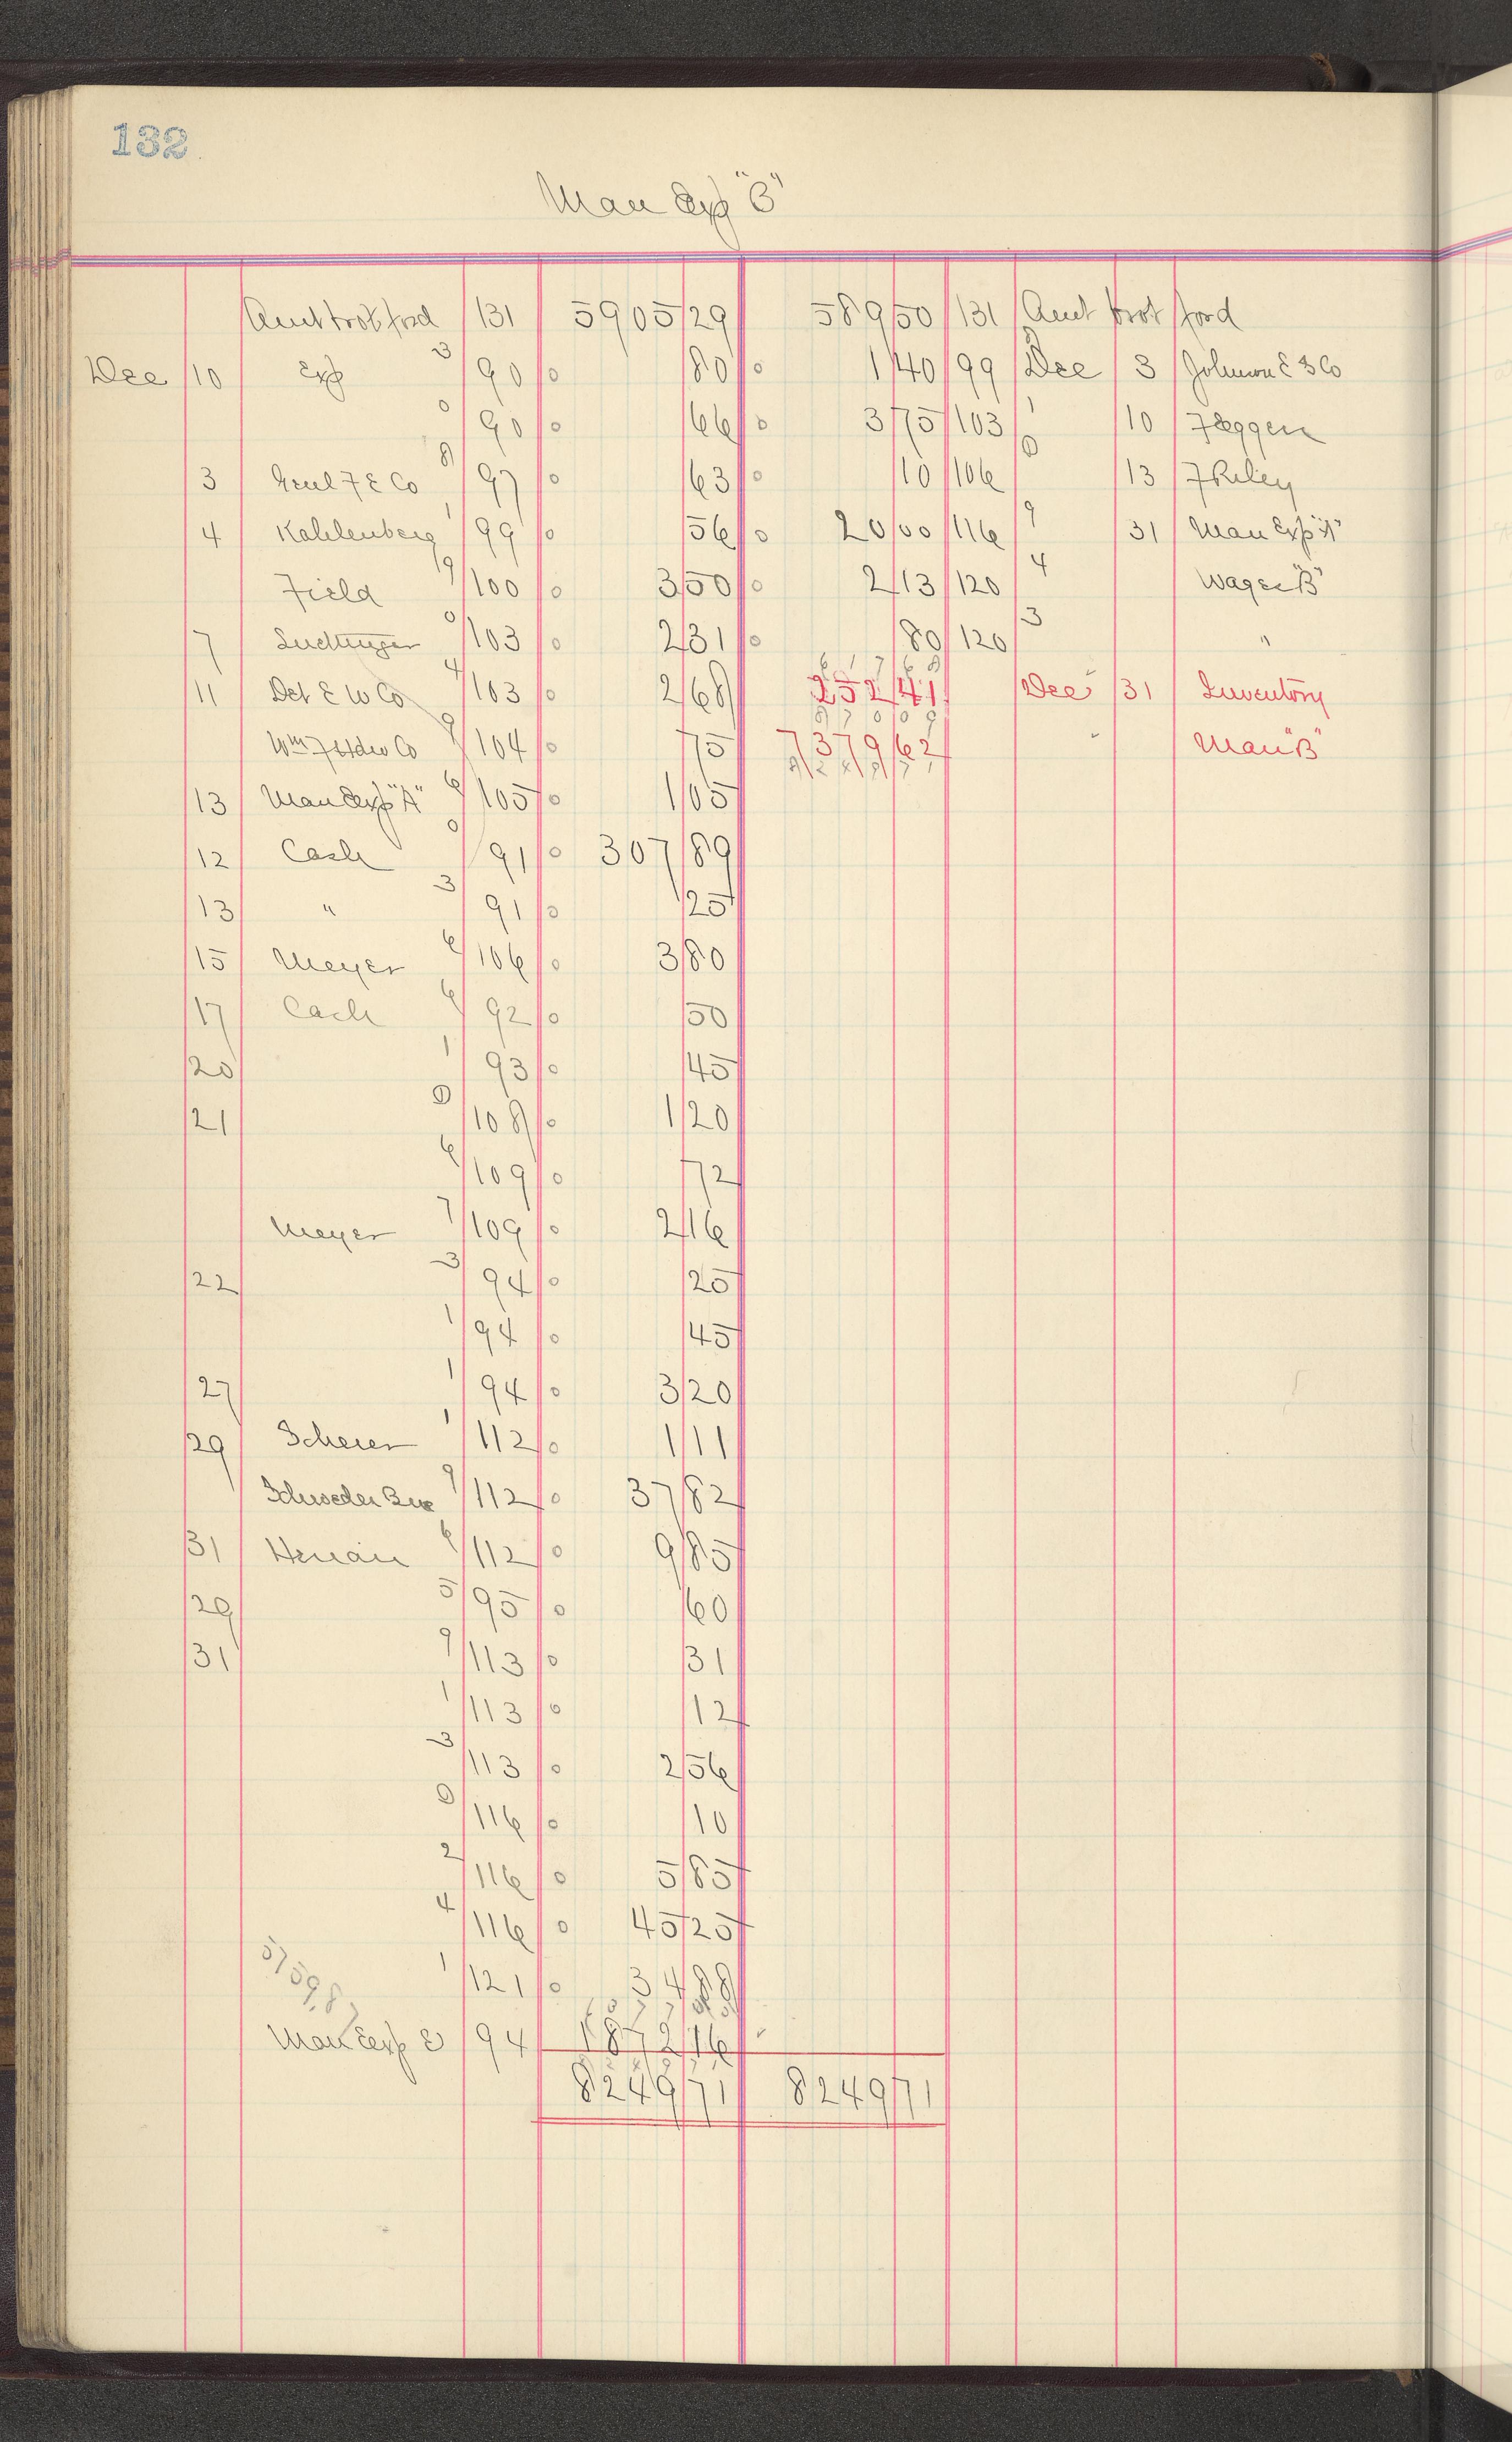 132
Man Exp "B"
Amt brot ford 131 5905 29 589 50 131 Amt brot ford
Dec 10 Exp 3 90 0 80 0 1 40 99 Dec 3 Johnson E 3 Co
0 90 0 66 0 3 75 103 1 10 Jaggen
3 Genl F E Co 8 97 0 63 0 10 106 0 13 F Riley
4 Kahlenberg 1 99 0 56 0 20 00 116 9 31 Man Exp "A"
Field 9 100 0 3 50 0 2 13 120 4 Wages "B"
7 0 103 0 2 31 0 80 120 3 "
11 Det E W Co 4 103 0 2 68 252 41 Dec 31 Inventory
Wm F Hdw Co 9 104 0 75 7379 62 Man "B"
13 Man Exp "A" 6 105 0 1 05
12 Cash 0 91 0 307 89
13 " 3 91 0 25
15 Meyer 6 106 0 3 80
17 Cash 6 92 0 50
20 1 93 0 45
21 0 108 0 1 20
6 109 0 72
Meyer 7 109 0 2 16
22 3 94 0 25
1 94 0 45
27 1 94 0 3 20
29 Scherer 1 112 0 1 11
Schroeder Bros 9 112 0 37 82
31 6 112 0 9 85
29 5 95 0 60
31 9 113 0 31
1 113 0 12
3 113 0 2 56
0 116 0 10
2 116 0 5 85
4 116 0 45 25
1 121 0 34 88
Man Exp E 94 1872 16
8249 71 8249 71